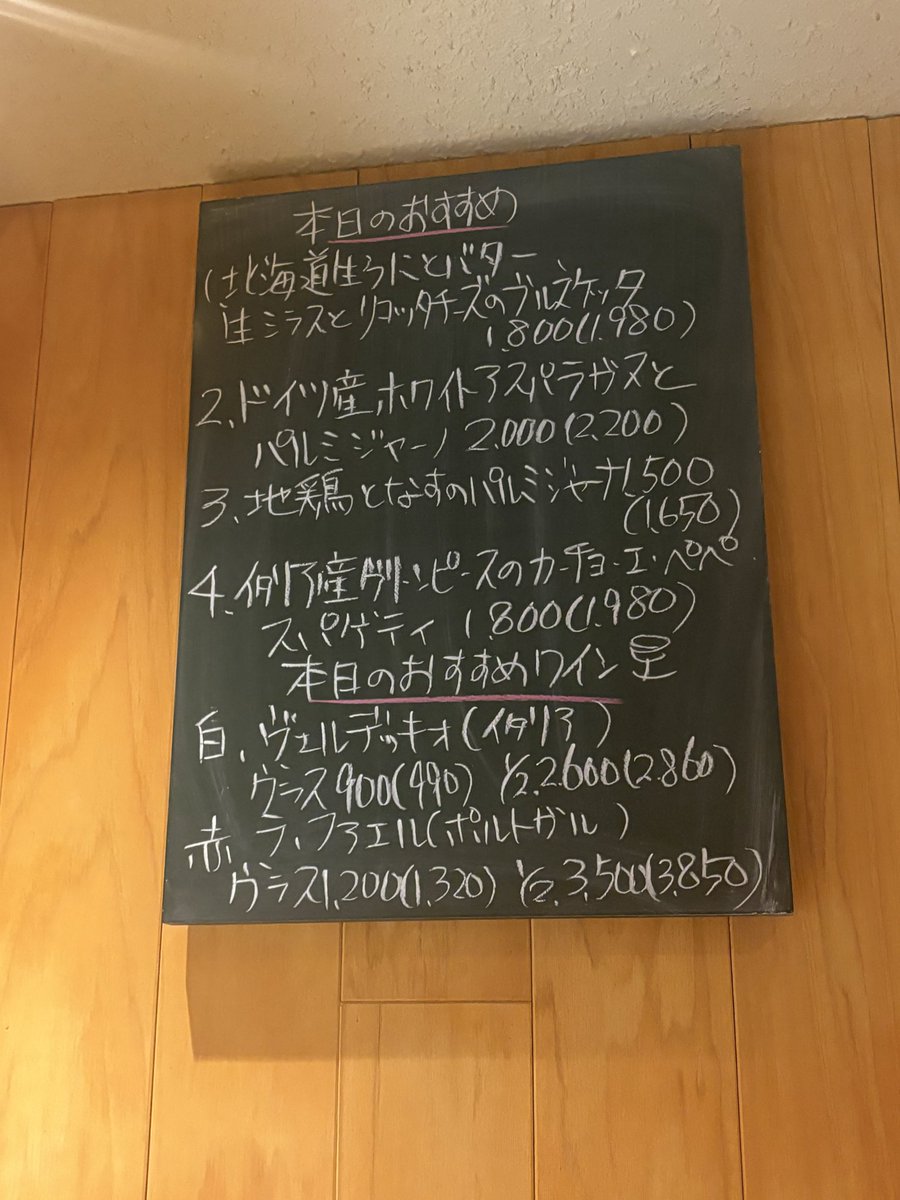 本日のおすすめ
1、北海道生うにとバター
生シラスとリコッタチーズのブルスケッタ
1.800(1.980)
2、ドイツ産ホワイトアスパラガスと
パルミジャーノ 2.000(2.200)
3、地鶏となすのパルミジャーナ1.500
(1.650)
4、イタリア産グリーンピースのカーチョ・エ・ペペ
スパゲティ 1.800(1.980)
本日のおすすめワイン
白、ヴェルデッキオ(イタリア)
グラス900(990) 1/2.2.600(2.860)
赤、ラ、ファエル(ポルトガル)
グラス1.200(1.320) 1/2.3.500(3.850)